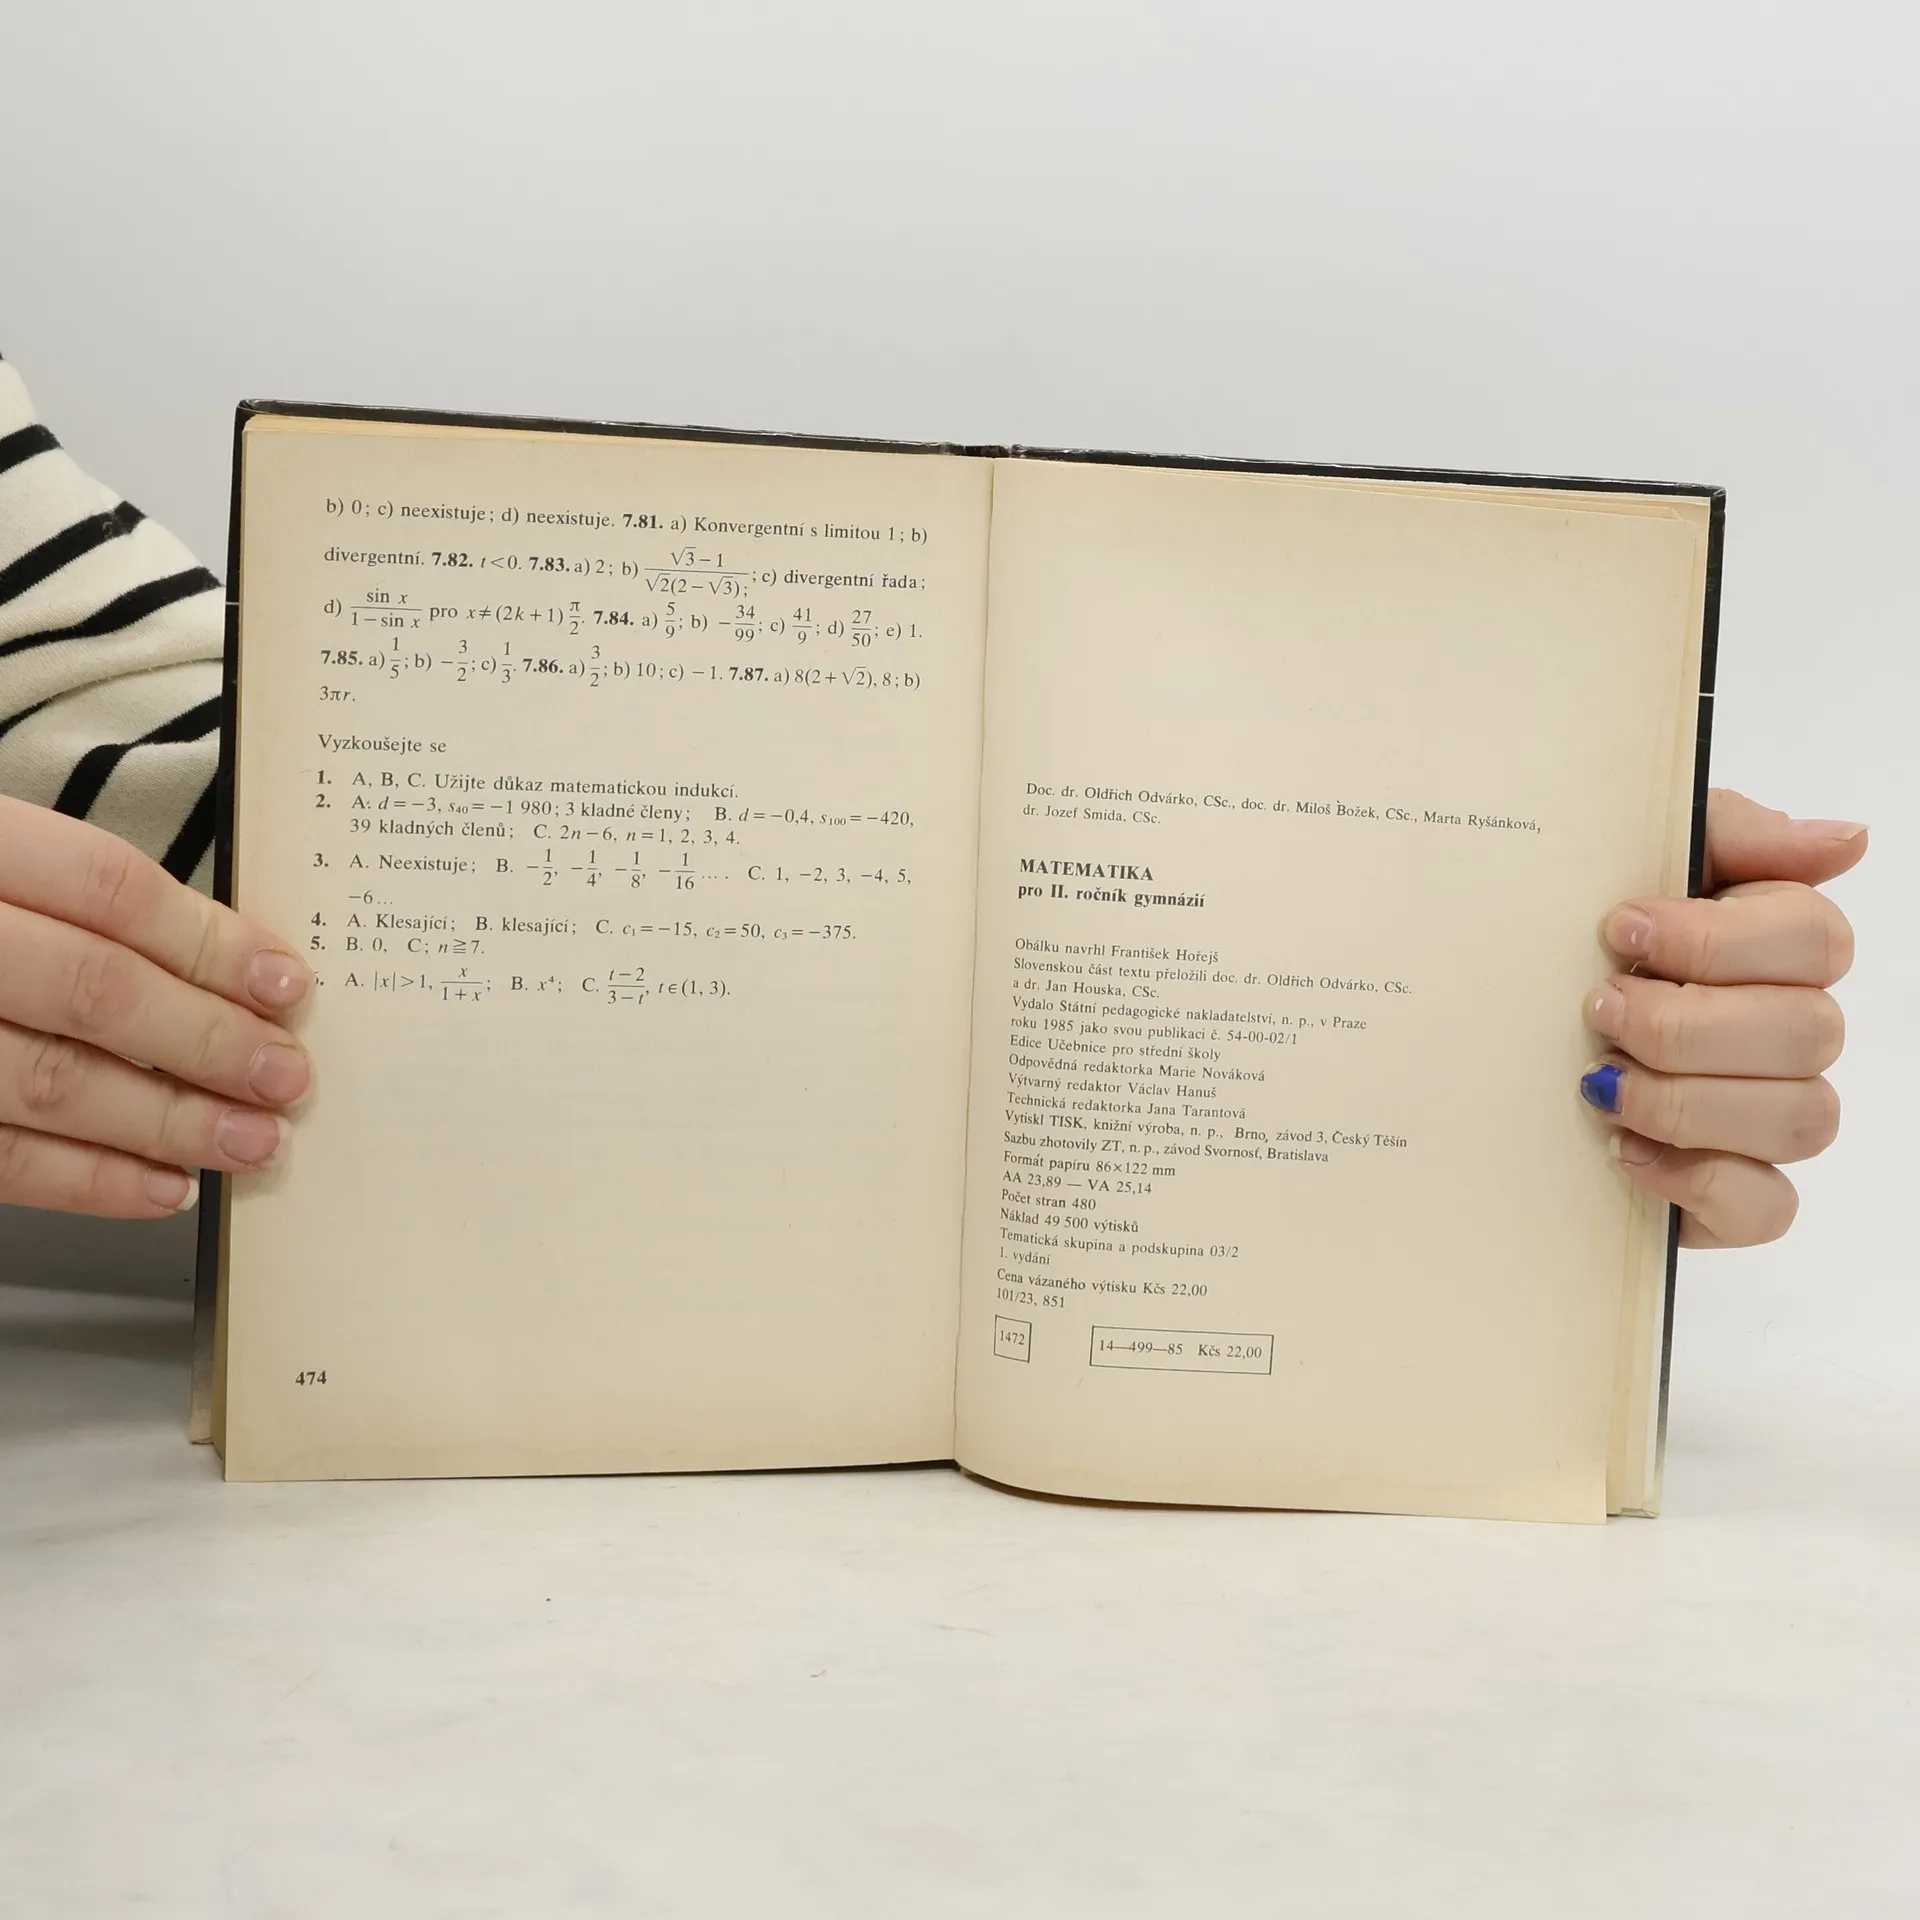 b) 0; c) neexistuje; d) neexistuje. 7.81. a) Konvergentní s limitou 1; b)
divergentní. 7.82. t<0. 7.83. a) 2; b) (√3−1)/(√2(2−√3)); c) divergentní řada;
d) sin x/(1−sin x) pro x≠(2k+1) π/2. 7.84. a) 5/9; b) −34/99; c) 41/9; d) 27/50; e) 1.
7.85. a) 1/5; b) −3/2; c) 1/3. 7.86. a) 3/2; b) 10; c) −1. 7.87. a) 8(2+√2), 8; b)
3πr.
Vyzkoušejte se
1. A, B, C. Užijte důkaz matematickou indukcí.
2. A. d=−3, s₄₀=−1 980; 3 kladné členy; B. d=−0,4, s₁₀₀=−420,
39 kladných členů; C. 2n−6, n=1, 2, 3, 4.
3. A. Neexistuje; B. −1/2, −1/4, −1/8, −1/16 .... C. 1, −2, 3, −4, 5,
−6...
4. A. Klesající; B. klesající; C. c₁=−15, c₂=50, c₃=−375.
5. B. 0, C; n≧7.
A. |x|>1, x/(1+x); B. x⁴; C. (t−2)/(3−t), t∈(1, 3).
474
Doc. dr. Oldřich Odvárko, CSc., doc. dr. Miloš Božek, CSc., Marta Ryšánková,
dr. Jozef Smida, CSc.
MATEMATIKA
pro II. ročník gymnázií
Obálku navrhl František Hořejš
Slovenskou část textu přeložili doc. dr. Oldřich Odvárko, CSc.
a dr. Jan Houska, CSc.
Vydalo Státní pedagogické nakladatelství, n. p., v Praze
roku 1985 jako svou publikaci č. 54-00-02/1
Edice Učebnice pro střední školy
Odpovědná redaktorka Marie Nováková
Výtvarný redaktor Václav Hanuš
Technická redaktorka Jana Tarantová
Vytiskl TISK, knižní výroba, n. p., Brno, závod 3, Český Těšín
Sazbu zhotovily ZT, n. p., závod Svornosť, Bratislava
Formát papíru 86×122 mm
AA 23,89 — VA 25,14
Počet stran 480
Náklad 49 500 výtisků
Tematická skupina a podskupina 03/2
1. vydání
Cena vázaného výtisku Kčs 22,00
101/23, 851
1472
14—499—85 Kčs 22,00